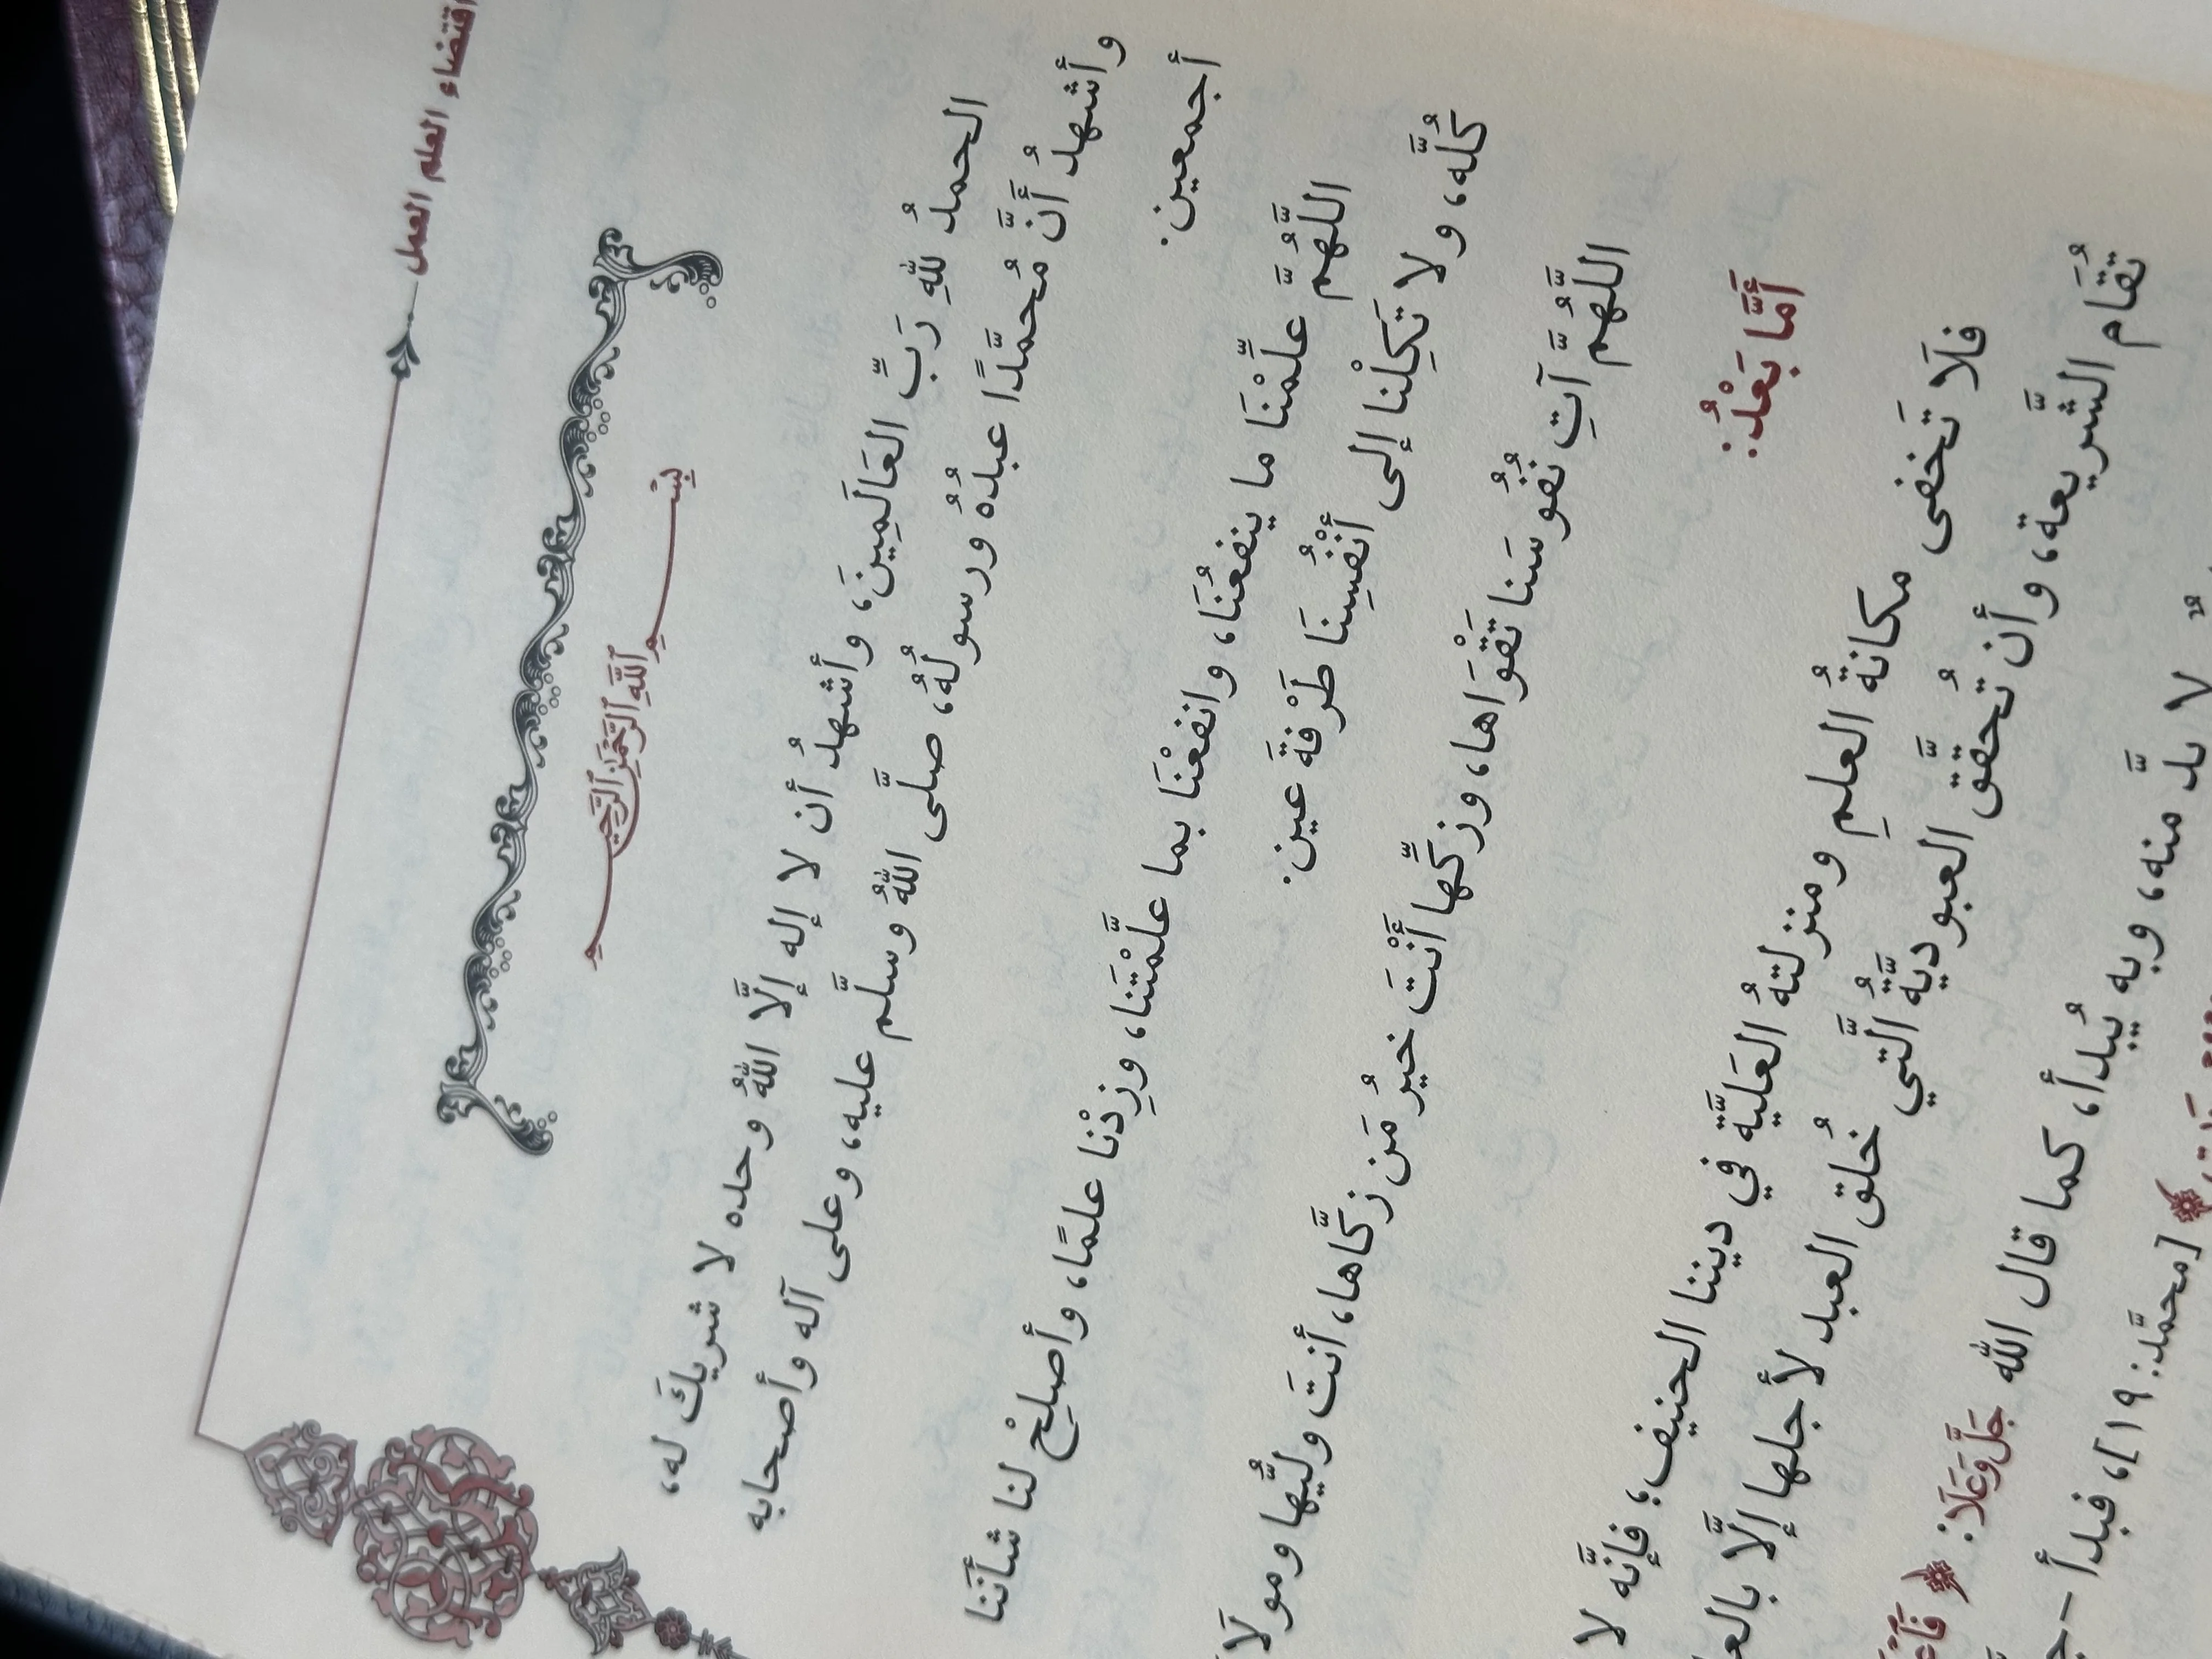 اقتضاء العلم العمل
بِسْمِ اللَّهِ الرَّحْمَٰنِ الرَّحِيمِ
الحمدُ للهِ رَبِّ العَالَمِينَ، وأشهدُ أن لا إله إلَّا اللهُ وحده لا شريكَ له،
وأشهدُ أَنَّ مُحمَّدًا عبدُهُ ورسولُهُ، صلَّى اللهُ وسلَّم عليه، وعلى آله وأصحابه
أجمعين.
اللَّهُمَّ علِّمْنَا ما ينفعُنَا، وانفعْنَا بما علَّمْتَنَا، وزِدْنا علمًا، وأصلِحْ لنا شأنَنَا
كُلَّه، ولا تَكِلْنا إلى أَنْفُسِنَا طَرْفةَ عين.
اللَّهُمَّ آتِ نُفُوسَنا تَقْوَاها، وزكِّها أَنْتَ خيرُ مَن زكَّاها، أنتَ وليُّها ومولَا
أَمَّا بَعْدُ:
فلَا تَخفى مكانةُ العلمِ ومنزلتهُ العَليَّة في ديننا الحنيف؛ فإنَّه لا
تُقَام الشَّريعة، وأن تُحقَّق العبوديَّةُ الَّتي خُلق العبد لأجلها إلَّا بالعل
لا بدَّ منه، وبه يُبدأ، كما قال الله جَلَّ وَعَلَا: ﴿ فَاعْ
﴾ [محمَّد: ١٩]، فبدأ -جـ